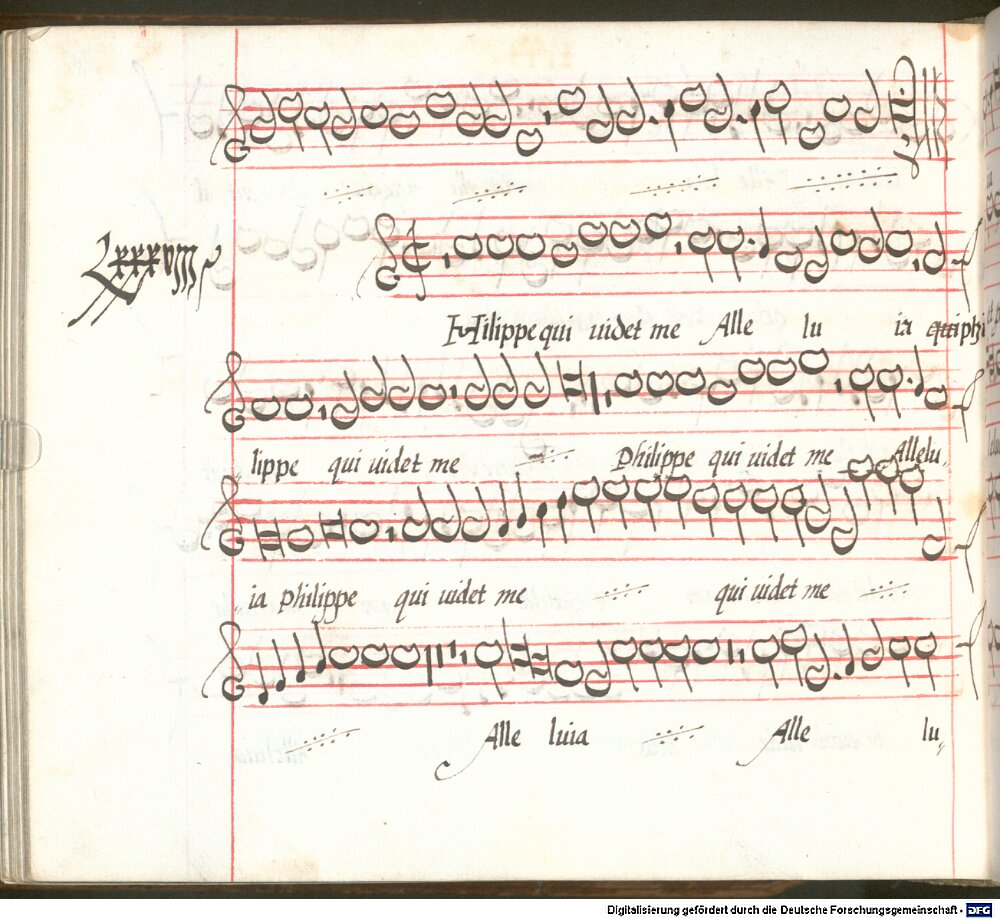 Lxxxvııı
Hilippe qui uidet me Alle lu ia qui phi
lippe qui uidet me Philippe qui uidet me Allelu
ia philippe qui uidet me qui uidet me
Alle luia Alle lu
Digitalisierung gefördert durch die Deutsche Forschungsgemeinschaft - DFG